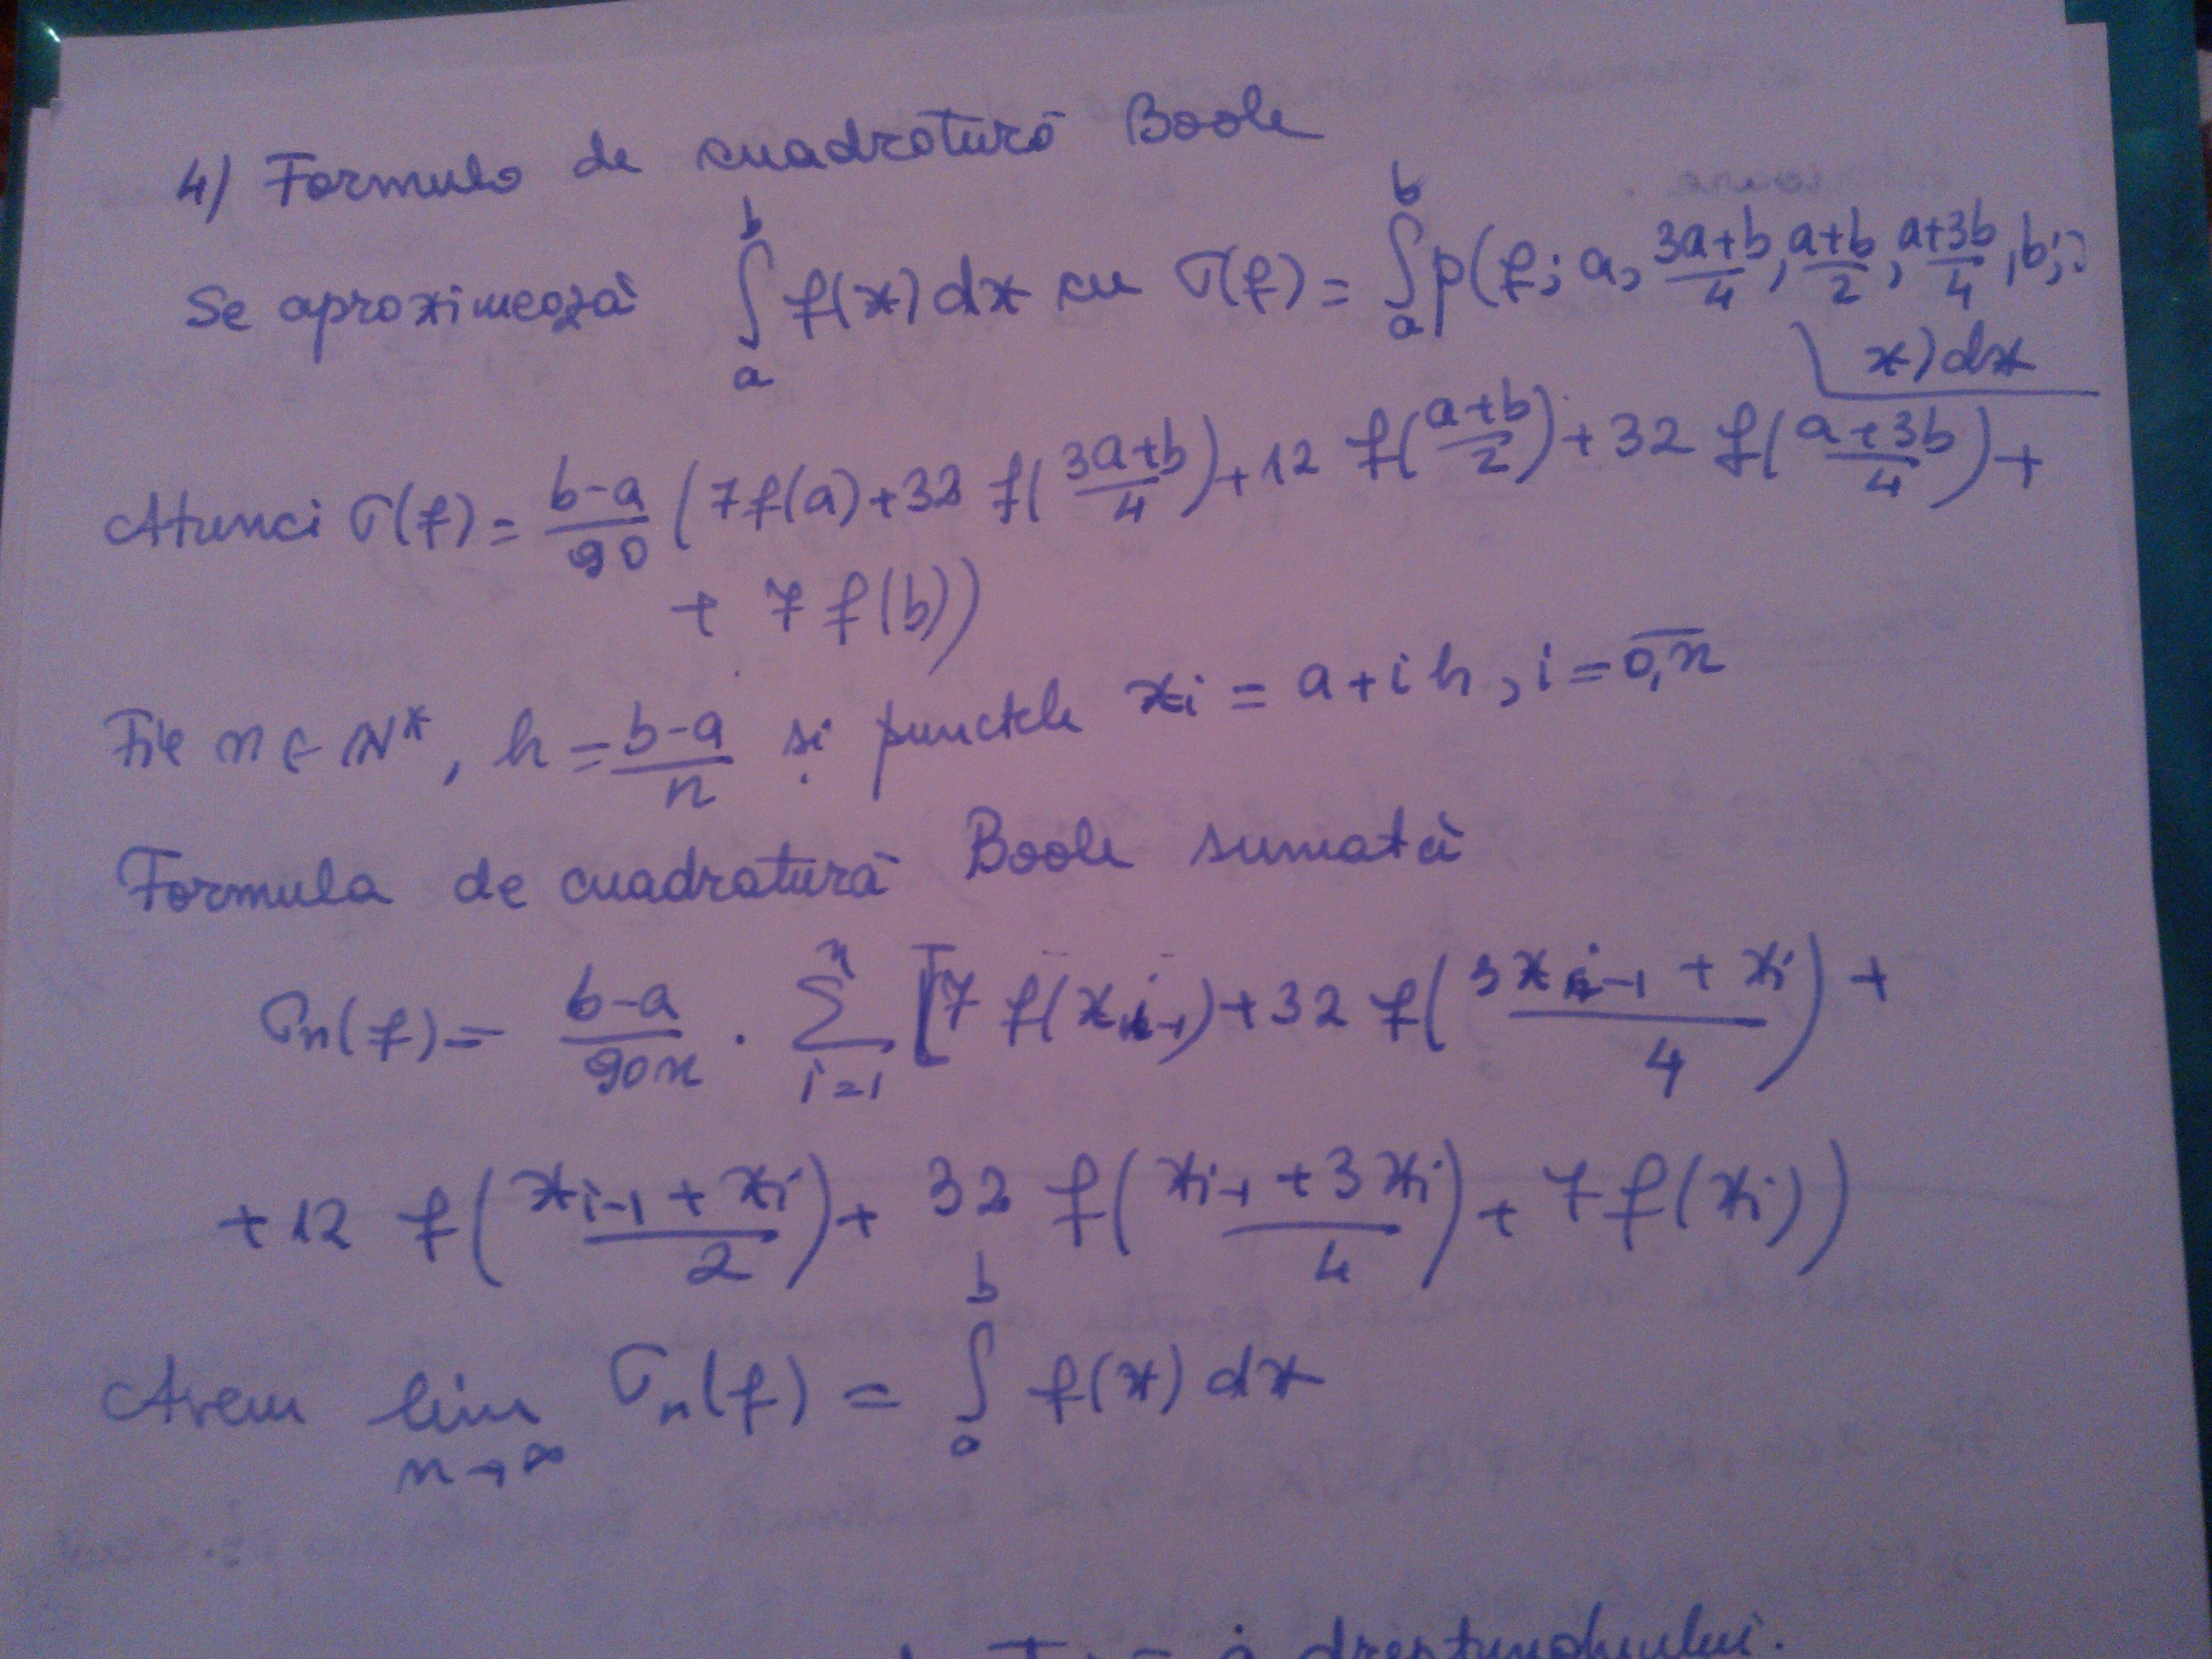 4) Formula de cuadratură Boole
Se aproximează ∫_a^b f(x)dx cu σ(f) = ∫_a^b p(f; a, (3a+b)/4, (a+b)/2, (a+3b)/4, b;
x)dx
Atunci σ(f) = (b-a)/90 (7f(a)+32 f((3a+b)/4)+12 f((a+b)/2)+32 f((a+3b)/4)+
+ 7 f(b))
Fie n ∈ N*, h = (b-a)/n și punctele xi = a+ih, i = 0,n
Formula de cuadratură Boole sumată
σn(f) = (b-a)/90n · ∑_{i=1}^n [7 f(xi-1)+32 f((3xi-1 + xi)/4) +
+12 f((xi-1 + xi)/2) + 32 f((xi-1 + 3xi)/4) + 7 f(xi))
Avem lim n→∞ σn(f) = ∫_a^b f(x) dx
dreptunghiului.